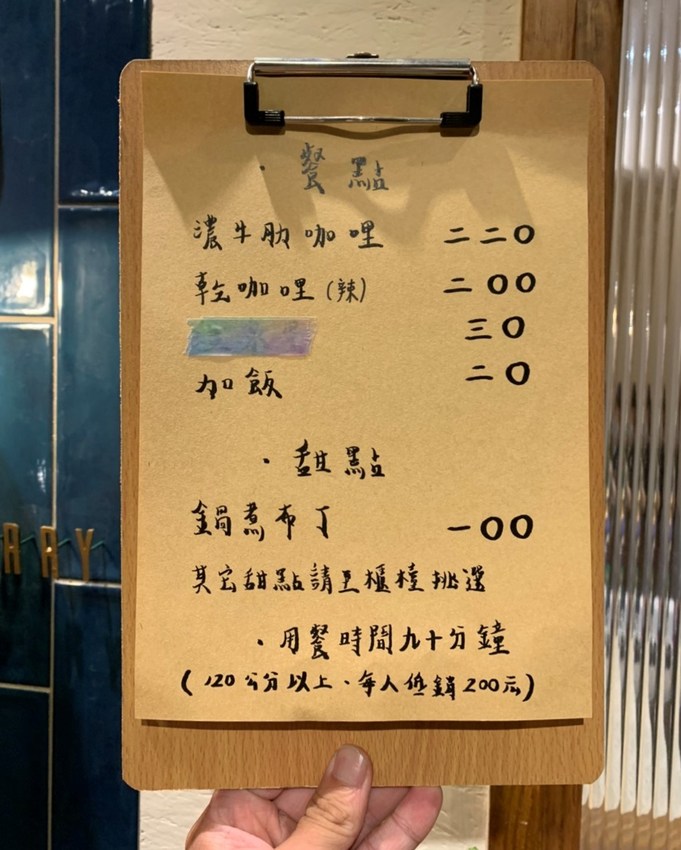 ・餐點
濃牛肋咖哩 二二〇
乾咖哩(辣) 二〇〇
三〇
加飯 二〇
・甜點
鍋煮布丁 一〇〇
其它甜點請至櫃檯挑選
・用餐時間九十分鐘
(120公分以上、每人低銷200元)
ARAY